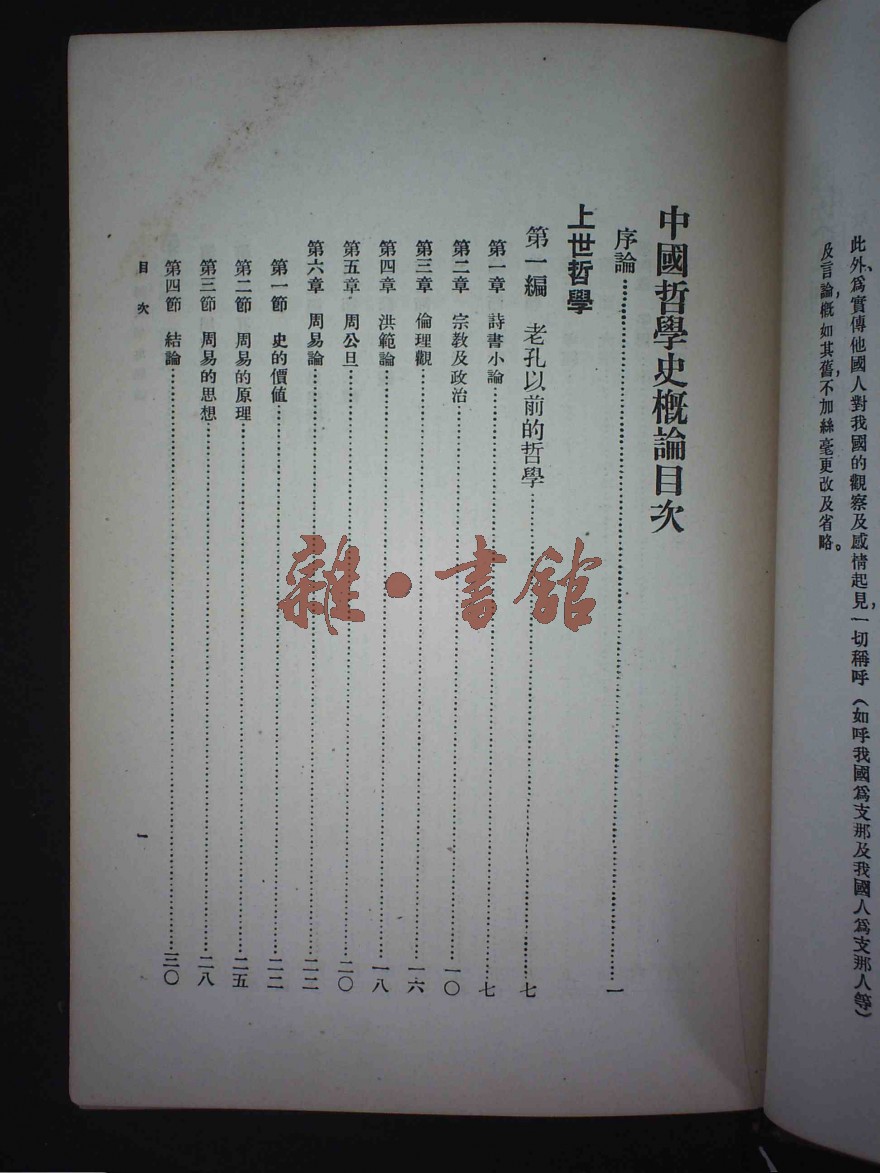 此外、爲實傳他國人對我國的觀察及感情起見，一切稱呼（如呼我國爲支那及我國人爲支那人等）
及言論，槪如其舊，不加絲毫更改及省略。
中國哲學史槪論目次
序論……一
上世哲學
第一編 老孔以前的哲學……七
第一章 詩書小論……七
第二章 宗教及政治……一〇
第三章 倫理觀……一六
第四章 洪範論……一八
第五章 周公旦……二〇
第六章 周易論……二二
第一節 史的價值……二二
第二節 周易的原理……二五
第三節 周易的思想……二八
第四節 結論……三〇
目次
一
雜·書館